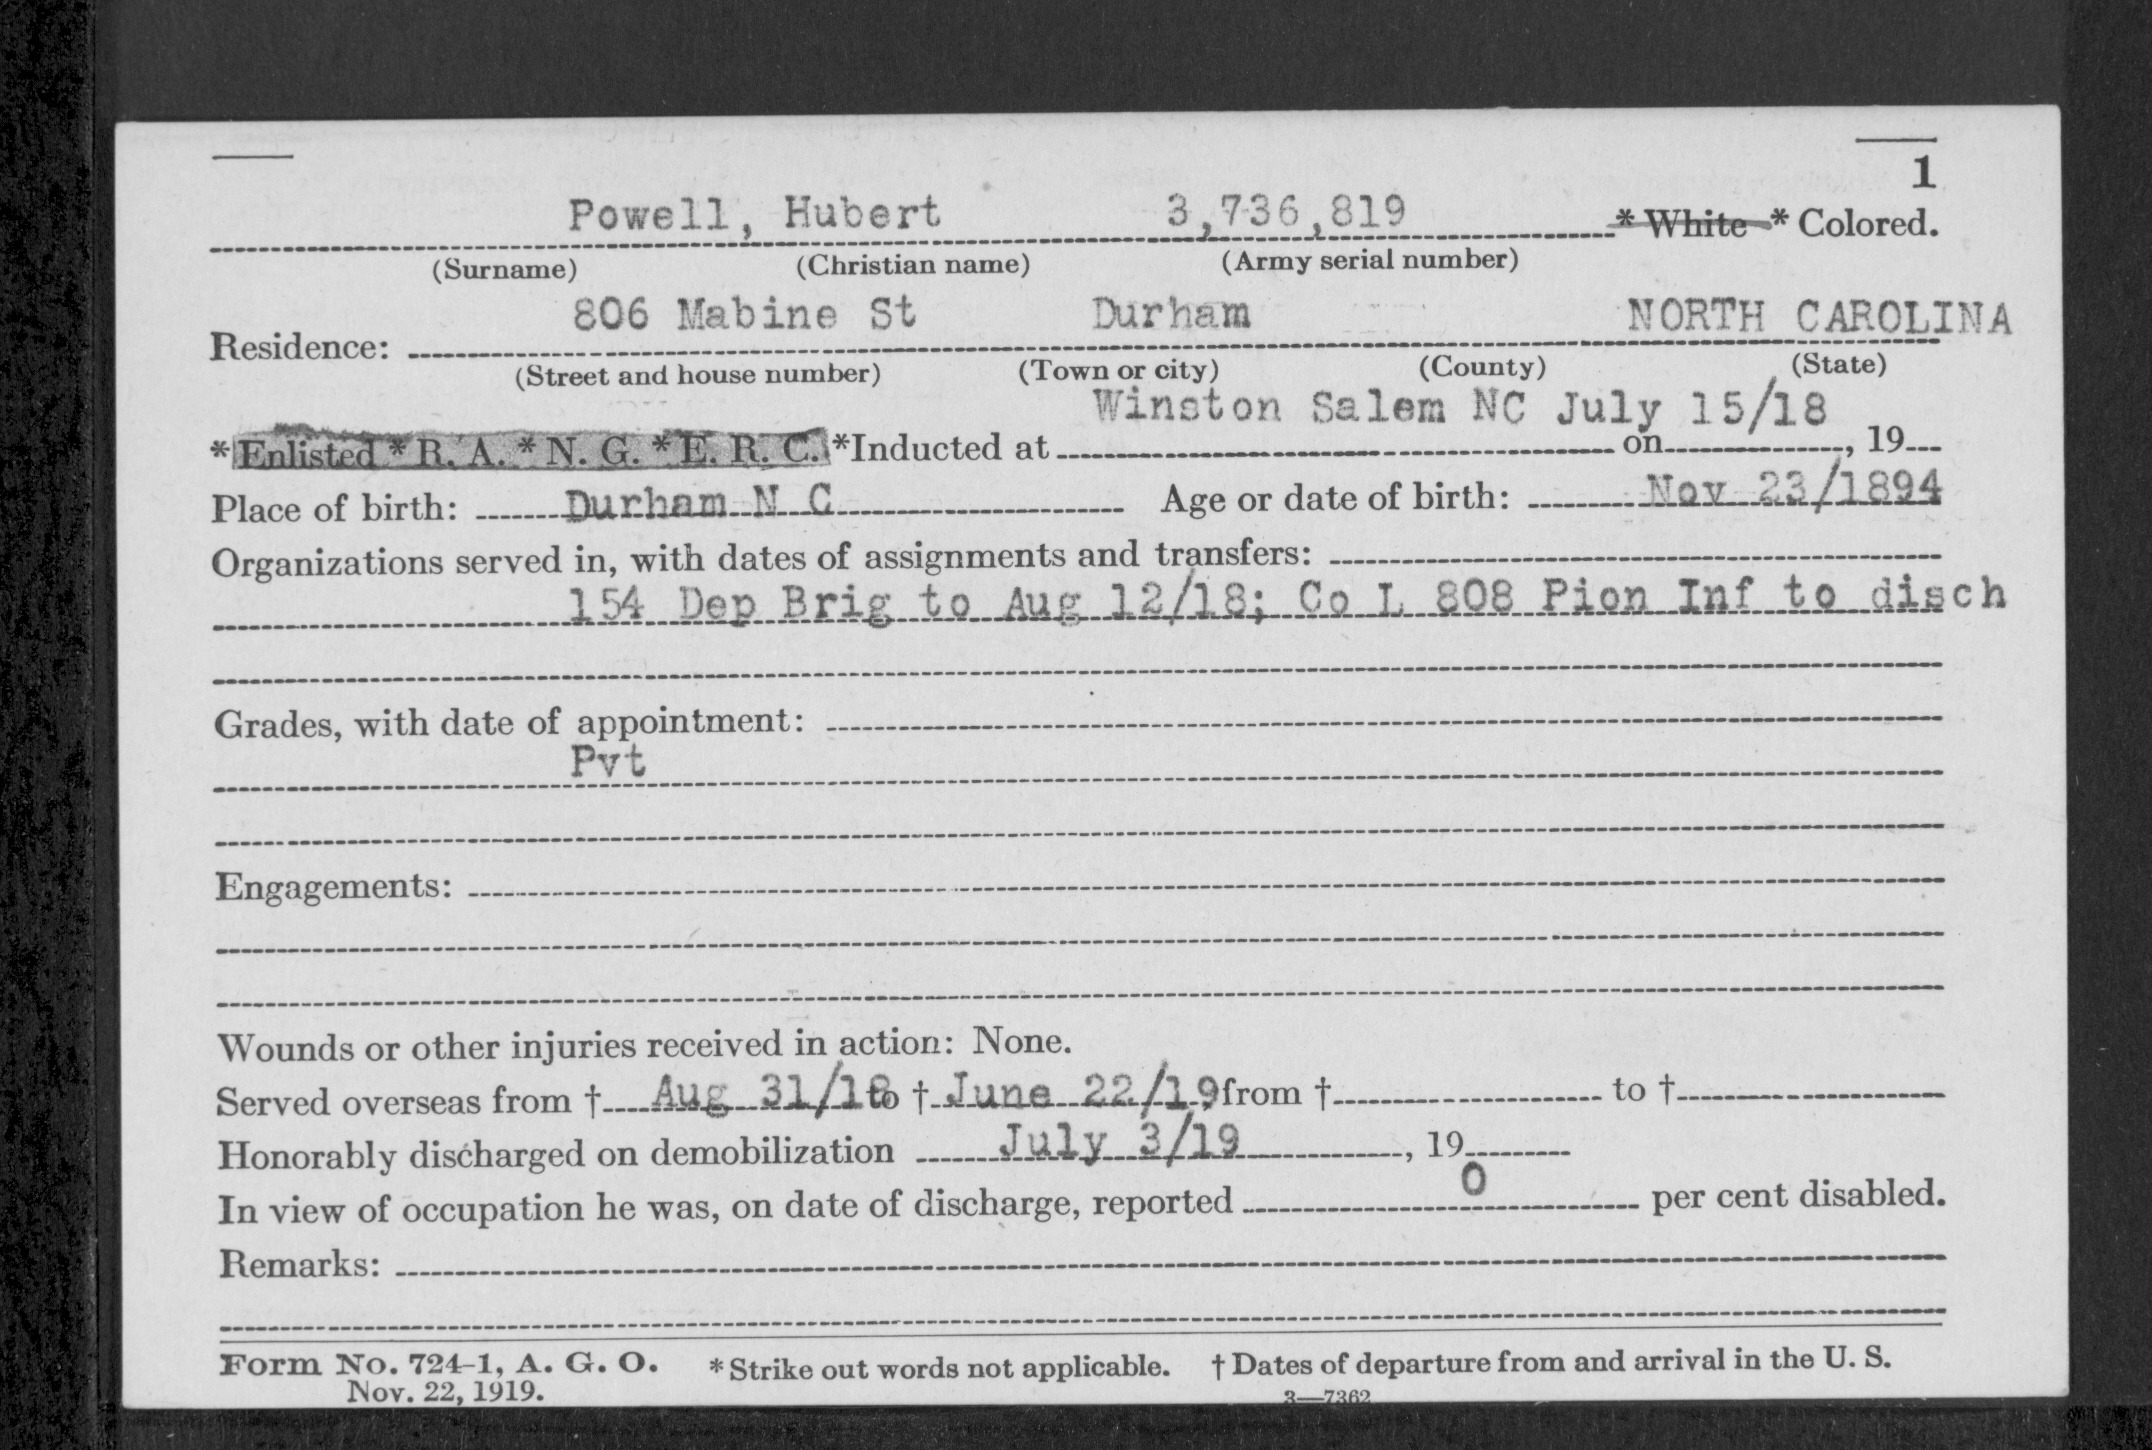 1
Powell, Hubert 3,736,819 * White * Colored.
(Surname) (Christian name) (Army serial number)
806 Mabine St Durham NORTH CAROLINA
Residence:
(Street and house number) (Town or city) (County) (State)
Winston Salem NC July 15/18
*Enlisted *R. A. *N. G. *E. R. C. *Inducted at on , 19
Place of birth: Durham N C Age or date of birth: Nov 23/1894
Organizations served in, with dates of assignments and transfers:
154 Dep Brig to Aug 12/18; Co L 808 Pion Inf to disch
Grades, with date of appointment:
Pvt
Engagements:
Wounds or other injuries received in action: None.
Served overseas from † Aug 31/18 to † June 22/19 from † to †
Honorably discharged on demobilization July 3/19 , 19
In view of occupation he was, on date of discharge, reported 0 per cent disabled.
Remarks:
Form No. 724-1, A. G. O. *Strike out words not applicable. †Dates of departure from and arrival in the U. S.
Nov. 22, 1919. 3—7362